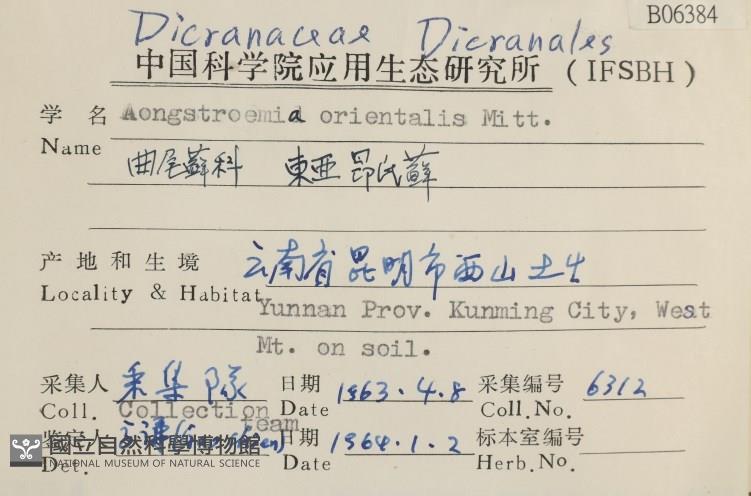 B06384
Dicranaceae Dicranales
中国科学院应用生态研究所 (IFSBH)
学名 Aongstroemia orientalis Mitt.
Name
曲尾蘚科 東亜昂氏蘚
产地和生境 云南省昆明市西山土生
Locality & Habitat Yunnan Prov. Kunming City, West
Mt. on soil.
采集人 采集隊 日期 1963.4.8 采集编号 6312
Coll. Collection team Date Coll.No.
鉴定人 日期 1964.1.2 标本室编号
Det. Date Herb.No.
國立自然科學博物館
NATIONAL MUSEUM OF NATURAL SCIENCE